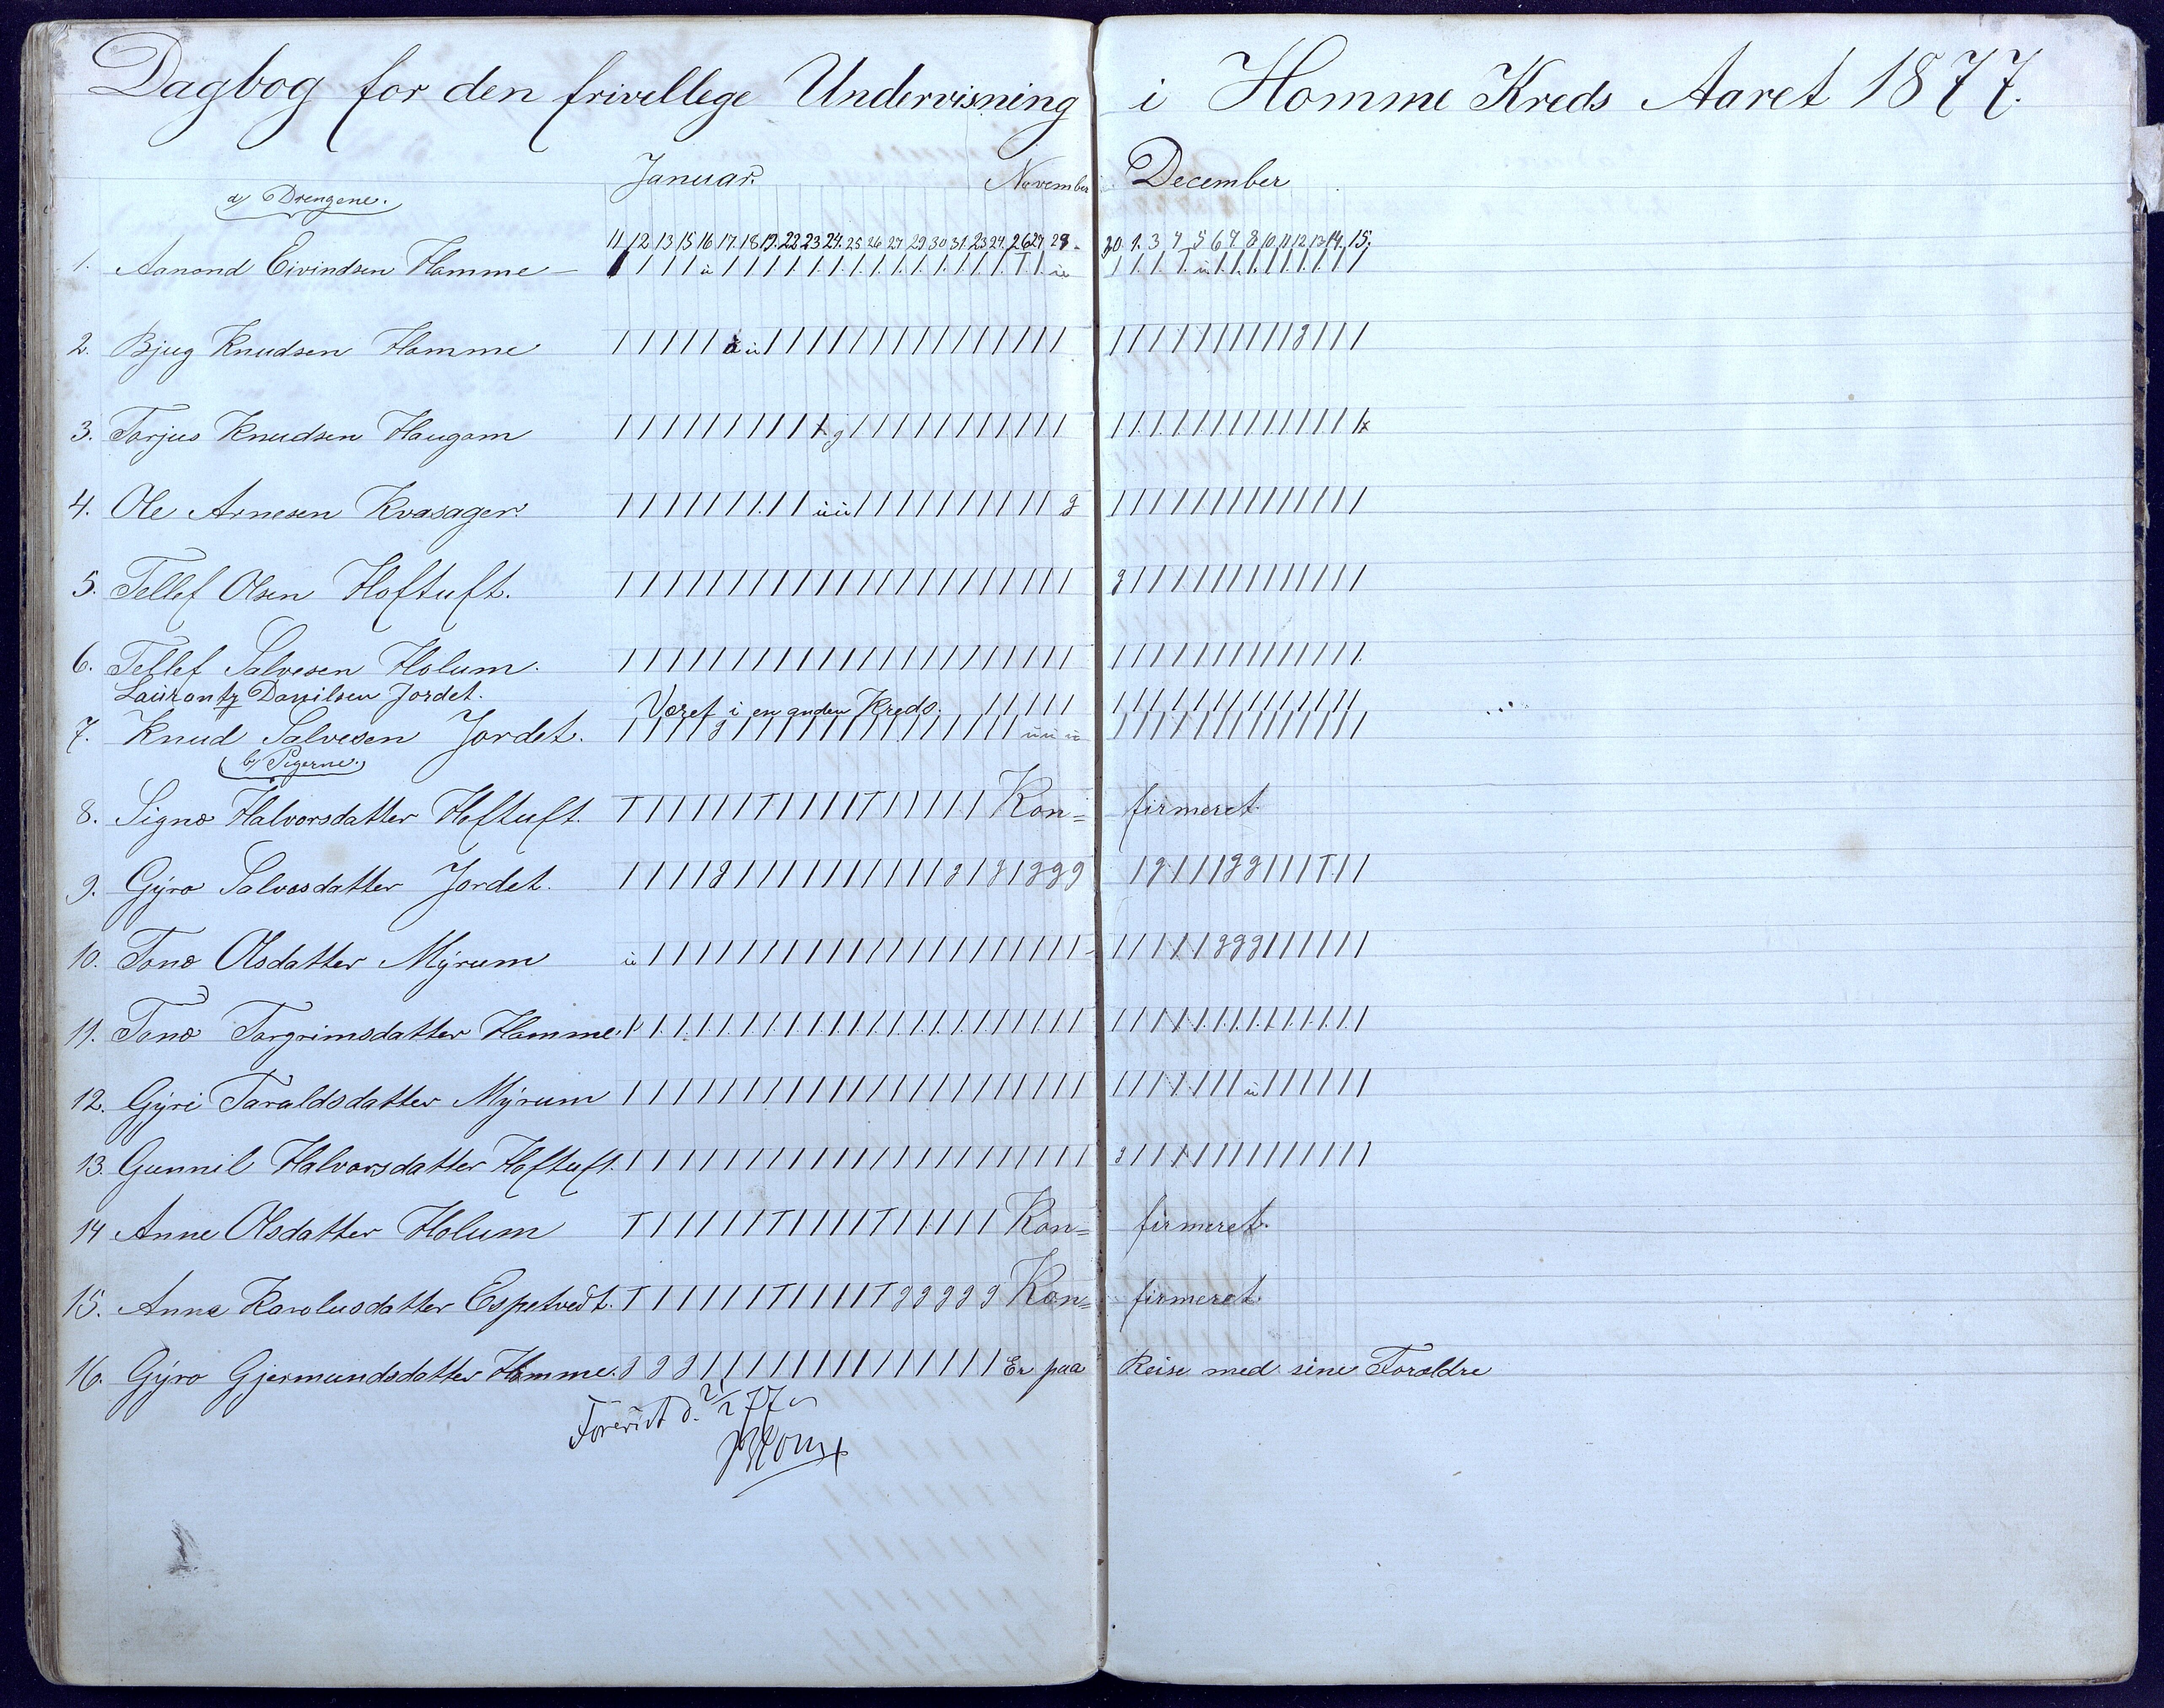 Dagbog for den frivellege Undervisning i Homme Kreds Aaret 1877.
Januar. November December
a) Drengene.
11 12 13 15 16 17 18 19 22 23 24 25 26 27 29 30 31 23 24 26 27 28 30 1. 3 4 5 6 7 8 10 11 12 13 14. 15.
1. Aanond Eivindsen Homme
2. Bjug Knudsen Homme
3. Torjus Knudsen Haugom
4. Ole Arnesen Kvasager.
5. Tellef Olsen Hoftuft.
6. Tellef Salvesen Holum.
Laurantz Danilsen Jordet. Været i en anden Kreds.
7. Knud Salvesen Jordet.
b) Pigerne.
8. Signe Halvorsdatter Hoftuft. Kon= firmeret.
9. Gÿro Salvesdatter Jordet.
10. Tone Olsdatter Mÿrum
11. Tone Torgrimsdatter Homme
12. Gÿri Taraldsdatter Mÿrum
13. Gunnil Halvorsdatter Hoftuft.
14 Anne Olsdatter Holum Kon= firmeret.
15. Anne Karolusdatter Espetvedt. Kon= firmeret
16. Gÿro Gjermundsdatter Homme. Er paa Reise med sine Forældre
Forevist d. 2/2 77